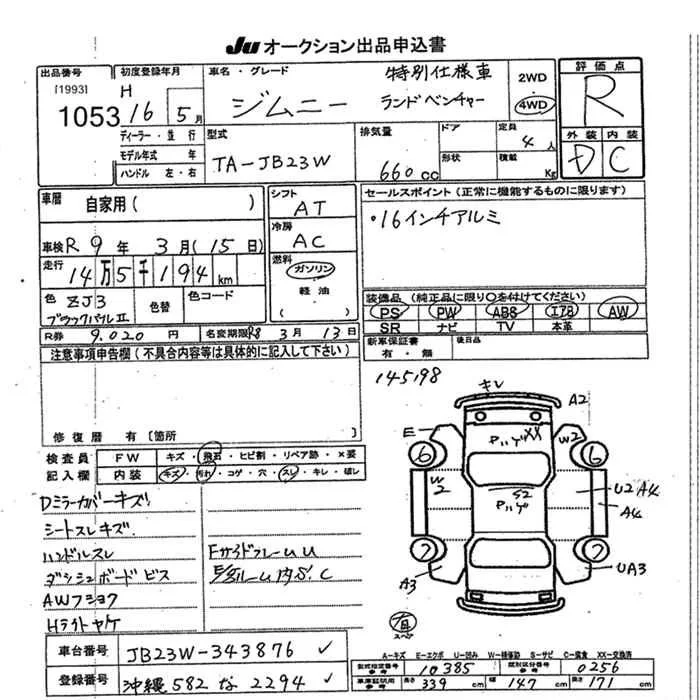 JU オークション出品申込書
出品番号 初度登録年月 車名・グレード 特別仕様車 2WD 評価点
[1993] H ジムニー ランドベンチャー 4WD R
1053 16 5月
ディーラー・並行 型式 排気量 ドア 定員 外装 内装
モデル年式 年 TA-JB23W 660cc 4人 D C
ハンドル 左・右 形状 積載 Kg
車暦 自家用( ) シフト AT セールスポイント (正常に機能するものに限ります)
冷房 ・16インチアルミ
車検 R 9年 3月(15日) AC
走行 14万5千194km 燃料 ガソリン
色 ZJ3 色替 色コード 軽油 装備品 (純正品に限り○を付けてください)
ブラックパールⅡ ( ) PS PW ABS エアB AW
SR ナビ TV 本革
R券 9.020円 名変期限 R8 3月13日 新車保証書 後日品
有・無
注意事項申告欄 (不具合内容等は具体的に記入して下さい)
145198
修復暦 有 〔箇所
検査員 FW キズ・飛石・ヒビ割・リペア跡・X要
記入欄 内装 キズ・汚れ・コゲ・穴・スレ・キレ・破レ
Dミラーカバーキズ
シートスレキズ
ハンドルスレ FサイドフレームU
ダッシュボードビス
AWフショク
Hライトヤケ
キレ A2
E XX W2
6 6
W2 S2 U2 A4
A4
7 7
A3 UA3
有
スペア
車台番号 JB23W-343876
登録番号 沖縄 582 な 2294
A-キズ E-エクボ U-凹み W-補修跡 S-サビ C-腐食 XX-交換済
型式指定番号 参考 10385 類別区分番号 参考 0256
車庫証明用 参考 長さ 339cm 幅 147cm 高さ 171cm